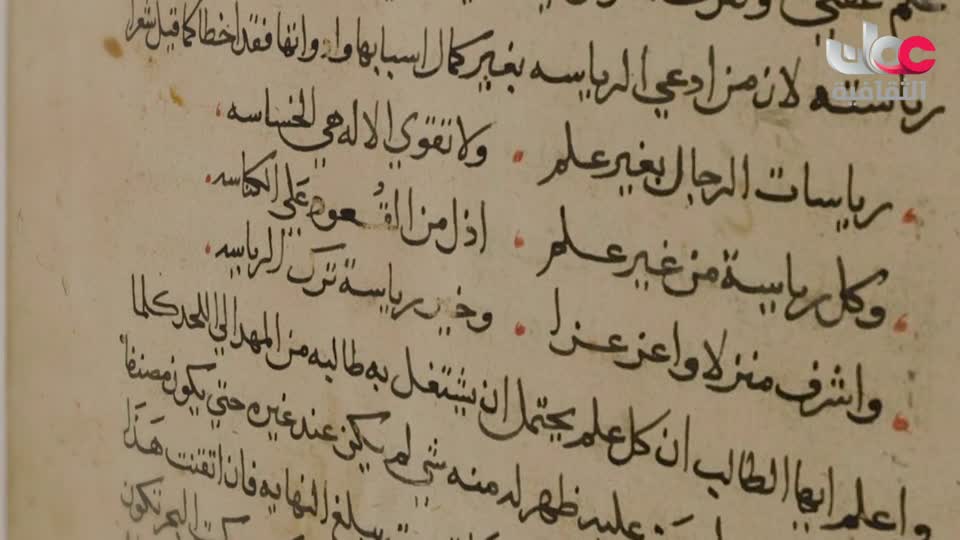 عمان
الثقافية
رياسته لان من ادعي الرياسه بغير كمال اسبابها واراد اتقانها فقد اخطا كما قيل شعرا
رياسات الرجال بغير علم ولا تقوي الاله هي الخساسه
وكل رياسة من غير علم اذل من القعود علي الكناسه
واشرف منزلا واعز عزا وخير رياسة ترك الرياسه
واعلم ايها الطالب ان كل علم يحتمل ان يشتغل به طالبه من المهد الي اللحد كلما
عليه ظهر له منه شي لم يكن عند غيره حتي يكون مصنفا
يبلغ النهايه فان اتقنت هذا
البحر تكون